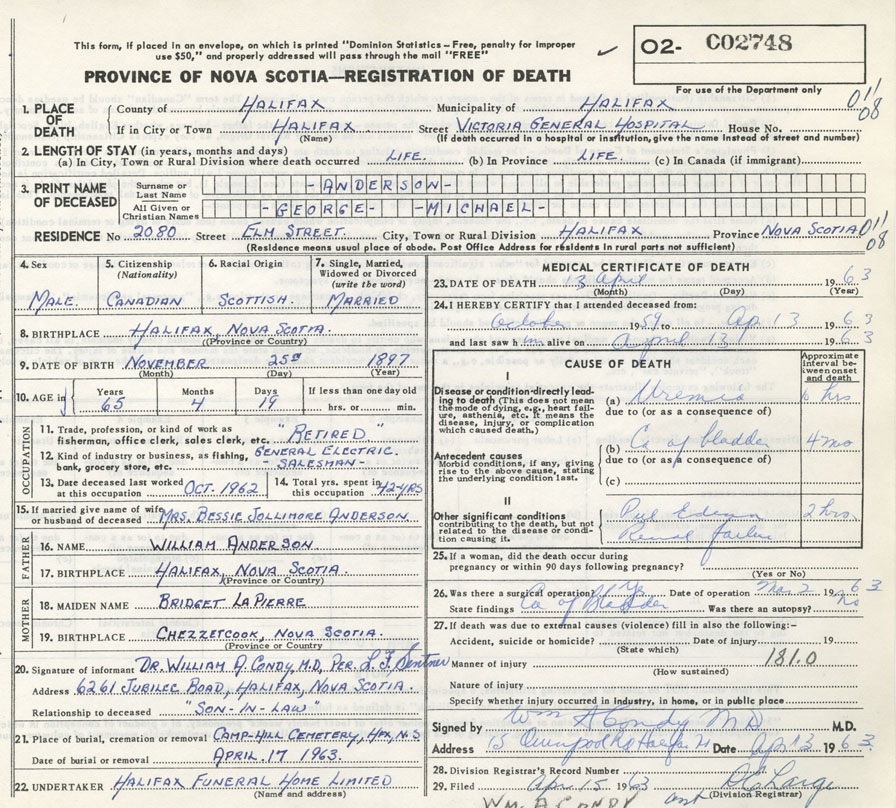 This form, if placed in an envelope, on which is printed "Dominion Statistics – Free, penalty for improper
use $50," and properly addressed will pass through the mail "FREE"
O2- C02748
PROVINCE OF NOVA SCOTIA—REGISTRATION OF DEATH
For use of the Department only
011
08
1. PLACE OF DEATH
County of HALIFAX Municipality of HALIFAX
If in City or Town HALIFAX Street VICTORIA GENERAL HOSPITAL House No.
(Name) (If death occurred in a hospital or institution, give the name instead of street and number)
2. LENGTH OF STAY (in years, months and days)
(a) In City, Town or Rural Division where death occurred LIFE. (b) In Province LIFE. (c) In Canada (if immigrant)
3. PRINT NAME OF DECEASED
Surname or Last Name -ANDERSON-
All Given or Christian Names -GEORGE- -MICHAEL-
RESIDENCE No 2080 Street ELM STREET City, Town or Rural Division HALIFAX Province NOVA SCOTIA 011
08
(Residence means usual place of abode. Post Office Address for residents in rural parts not sufficient)
4. Sex MALE.
5. Citizenship (Nationality) CANADIAN
6. Racial Origin SCOTTISH.
7. Single, Married, Widowed or Divorced (write the word) MARRIED
8. BIRTHPLACE HALIFAX, NOVA SCOTIA.
(Province or Country)
9. DATE OF BIRTH NOVEMBER 25 1897
(Month) (Day) (Year)
10. AGE in Years 65 Months 4 Days 19 If less than one day old
hrs. or min.
OCCUPATION
11. Trade, profession, or kind of work as
fisherman, office clerk, sales clerk, etc. "RETIRED"
12. Kind of industry or business, as fishing, GENERAL ELECTRIC.
bank, grocery store, etc. -SALESMAN-
13. Date deceased last worked at this occupation OCT. 1962
14. Total yrs. spent in this occupation 42-YRS
15. If married give name of wife
or husband of deceased MRS. BESSIE JOLLIMORE ANDERSON
FATHER
16. NAME WILLIAM ANDERSON
17. BIRTHPLACE HALIFAX, NOVA SCOTIA.
(Province or Country)
MOTHER
18. MAIDEN NAME BRIDGET LAPIERRE
19. BIRTHPLACE CHEZZETCOOK, NOVA SCOTIA.
(Province or Country)
20. Signature of informant DR. WILLIAM A. CONDY, M.D, PER. L. F. Sentner
Address 6261 JUBILEE ROAD, HALIFAX, NOVA SCOTIA.
Relationship to deceased "SON-IN-LAW"
21. Place of burial, cremation or removal CAMP-HILL CEMETERY, HFX, N.S
Date of burial or removal APRIL. 17 1963.
22. UNDERTAKER HALIFAX FUNERAL HOME LIMITED
(Name and address)
MEDICAL CERTIFICATE OF DEATH
23. DATE OF DEATH 13 April 1963
(Month) (Day) (Year)
24. I HEREBY CERTIFY that I attended deceased from:
October 1959 to Ap 13 1963
and last saw him alive on April 13 1963
CAUSE OF DEATH
Approximate interval between onset and death
I
Disease or condition directly leading to death (This does not mean the mode of dying, e.g., heart failure, asthenia, etc. It means the disease, injury, or complication which caused death.)
(a) Uremia 6 hrs
due to (or as a consequence of)
Antecedent causes
Morbid conditions, if any, giving rise to the above cause, stating the underlying condition last.
(b) Ca of bladder 4 mo
due to (or as a consequence of)
(c)
II
Other significant conditions
contributing to the death, but not related to the disease or condition causing it.
Pul Edema 2 hrs
Renal failure
25. If a woman, did the death occur during
pregnancy or within 90 days following pregnancy?
(Yes or No)
26. Was there a surgical operation? Yes Date of operation Mar 2 1963
State findings Ca of Bladder Was there an autopsy? no
27. If death was due to external causes (violence) fill in also the following:–
Accident, suicide or homicide? Date of injury 19
(State which)
Manner of injury 181.0
(How sustained)
Nature of injury
Specify whether injury occurred in industry, in home, or in public place
Signed by Wm A Condy MD M.D.
Address 15 Quinpool Rd Halifax Date Ap 13 1963
28. Division Registrar's Record Number
29. Filed Apr 15 1963
(Division Registrar)
WM. A CONDY